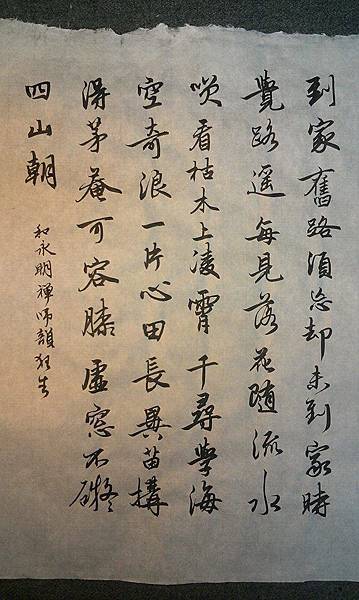 到家舊路須忘却未到家時
覺路遥每見落花随流水
咲看枯木上凌霄千尋學海
空奇浪一片心田長異苗構
得茅菴可容膝虚窓不礙
四山朝
和永明禪師韻